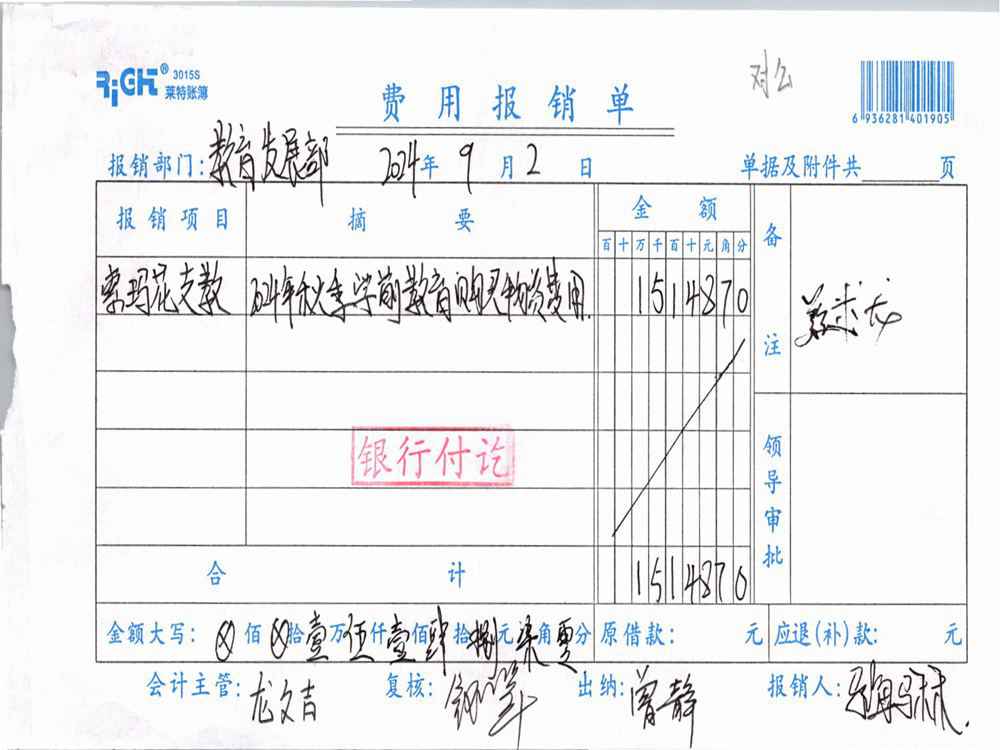 RiGHT® 3015S
莱特账簿
对公
费用报销单
6 936281 401905
报销部门:教育发展部 2024年9月2日 单据及附件共 页
报销项目 摘要 金额 备注
百十万千百十元角分
索玛花支教 2024年秋季学前教育购买物资费用. 1514870
银行付讫
领导审批
合计 1514870
金额大写:ⓧ佰ⓧ拾壹万伍仟壹佰肆拾捌元柒角零分 原借款: 元 应退(补)款: 元
会计主管:龙文吉 复核: 出纳:曾静 报销人: